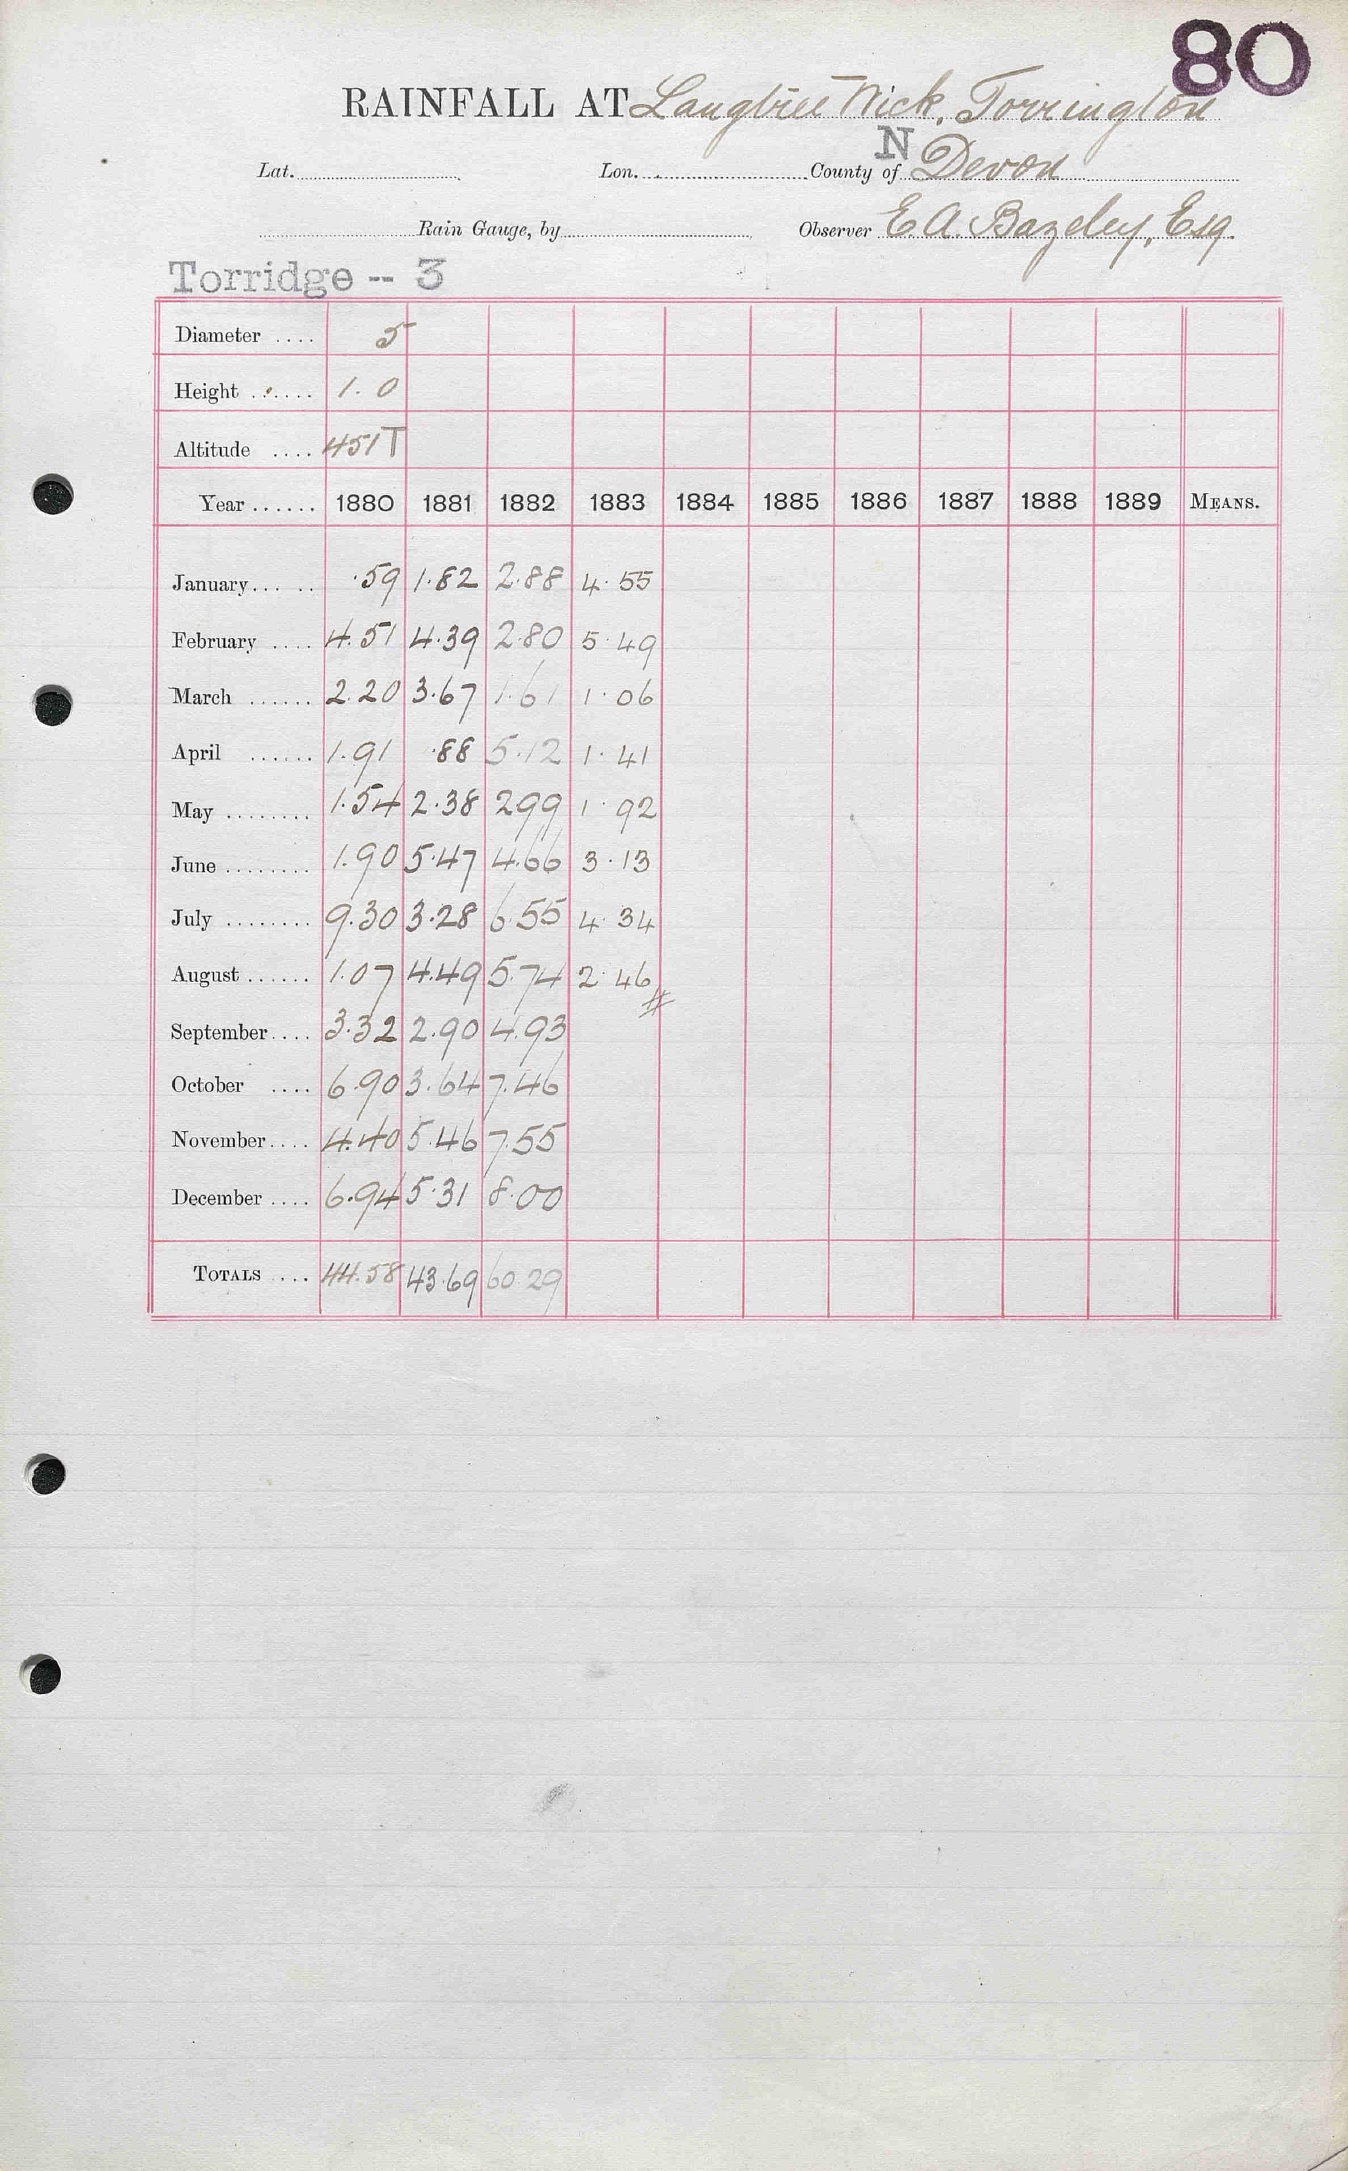 80
RAINFALL AT Langtree Wick, Torrington
Lat. Lon. County of N Devon
Rain Gauge, by Observer E. A. Bazeley, Esq.
Torridge -- 3
Diameter .... 5
Height ...... 1.0
Altitude .... 451T
Year ...... 1880 1881 1882 1883 1884 1885 1886 1887 1888 1889 MEANS.
January ..... .59 1.82 2.88 4.55
February .... 4.51 4.39 2.80 5.49
March ...... 2.20 3.67 1.61 1.06
April ...... 1.91 .88 5.12 1.41
May ........ 1.54 2.38 2.99 1.92
June ........ 1.90 5.47 4.66 3.13
July ........ 9.30 3.28 6.55 4.34
August ...... 1.07 4.49 5.74 2.46 #
September .... 3.32 2.90 4.93
October .... 6.90 3.64 7.46
November .... 4.40 5.46 7.55
December .... 6.94 5.31 8.00
TOTALS .... 44.58 43.69 60.29